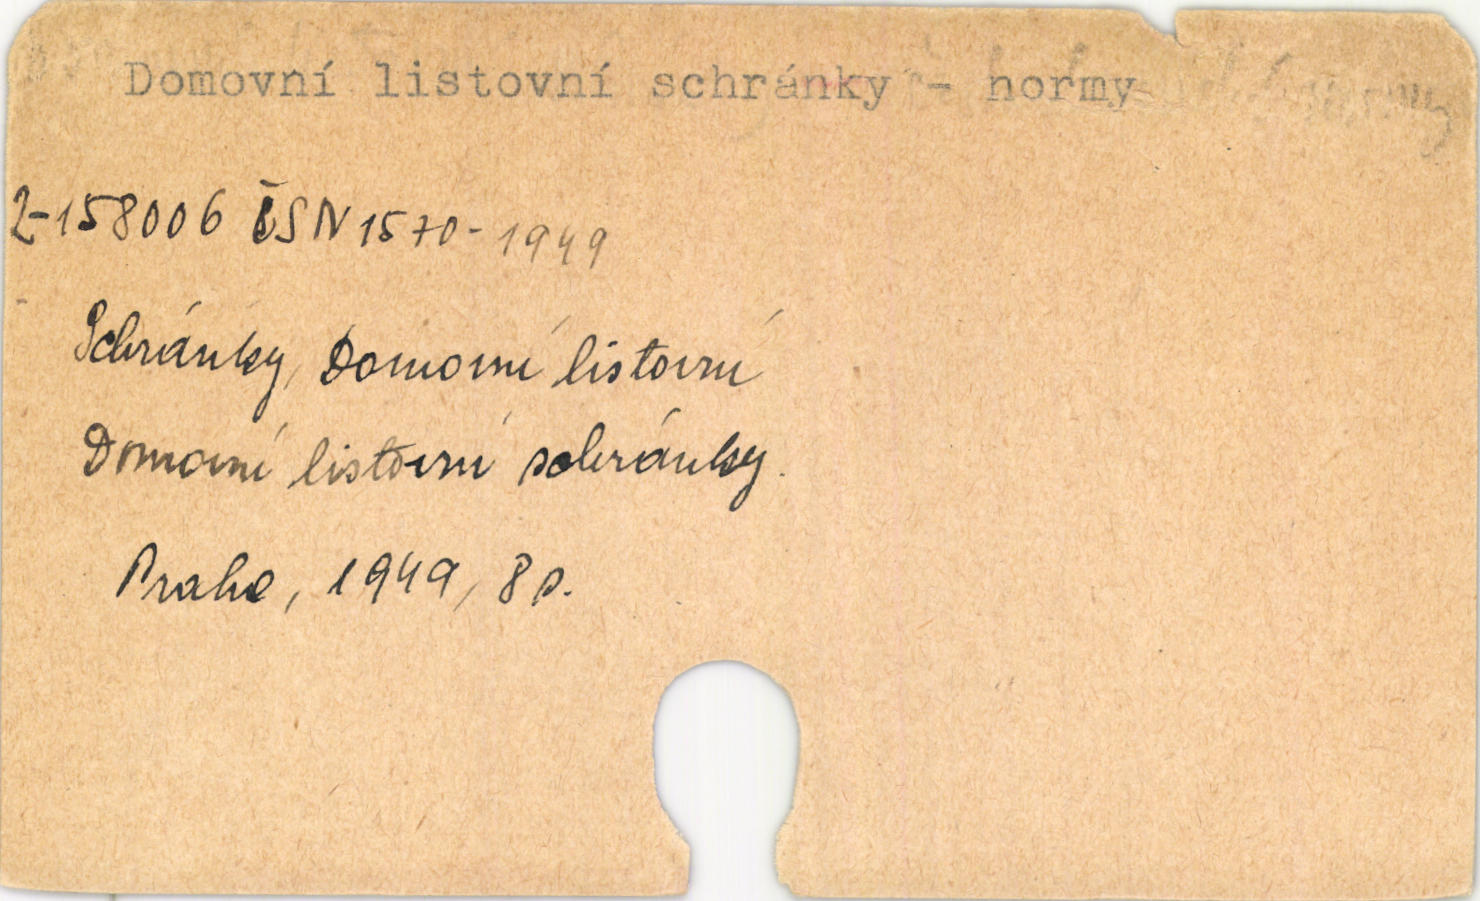 Domovní listovní schránky - normy
2-158006 ČSN 1570-1949
Schránky, Domovní listovní
Domovní listovní schránky.
Praha, 1949, 8 s.